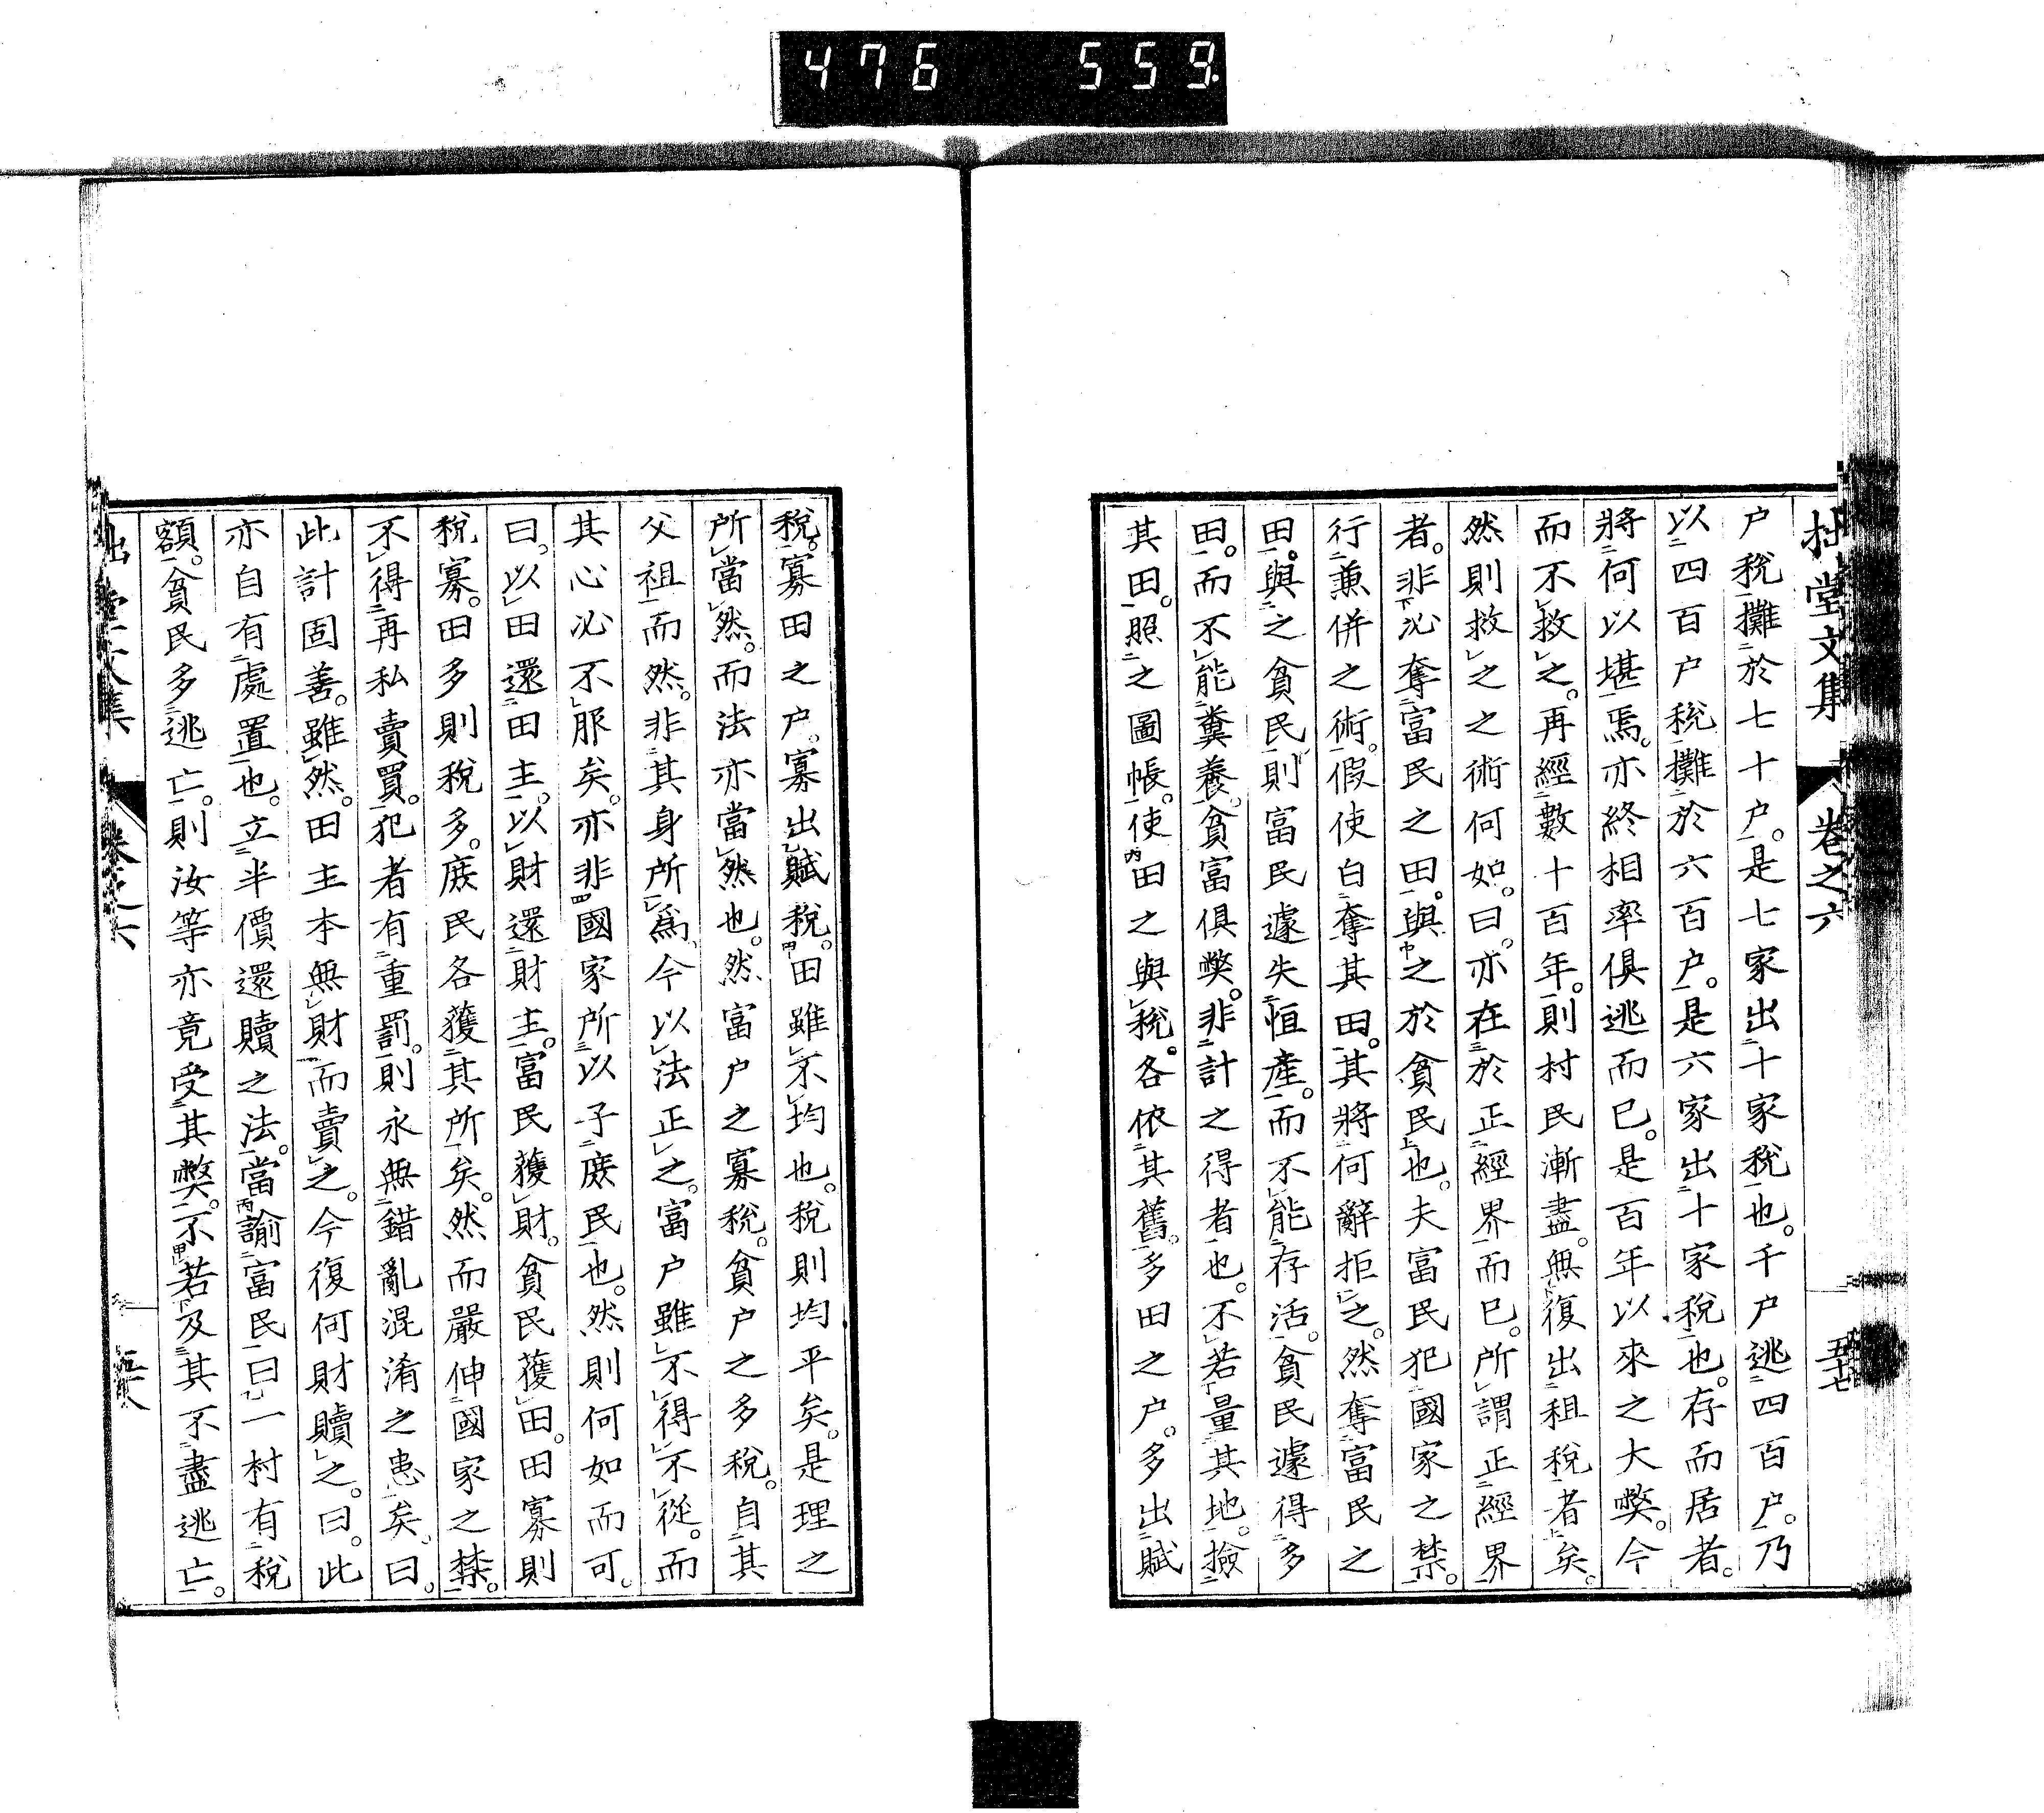 476 559
拙堂文集 卷之六 五十七
户稅攤於七十户。是七家出十家稅也。千户逃四百户。乃
以四百户稅攤於六百户。是六家出十家稅也。存而居者。
將何以堪焉。亦終相率俱逃而已。是百年以來之大弊。今
而不救之。再經數十百年。則村民漸盡。無復出租稅者矣。
然則救之之術何如。曰。亦在於正經界而已。所謂正經界
者。非必奪富民之田。與之於貧民也。夫富民犯國家之禁。
行兼併之術。假使白奪其田。其將何辭拒之。然奪富民之
田。與之貧民。則富民遽失恒產。而不能存活。貧民遽得多
田。而不能糞養。貧富俱弊。非計之得者也。不若量其地。撿
其田。照之圖帳。使田之與稅。各依其舊。多田之户。多出賦
稅。寡田之户。寡出賦稅。田雖不均也。稅則均平矣。是理之
所當然。而法亦當然也。然富户之寡稅。貧户之多稅。自其
父祖而然。非其身所爲。今以法正之。富户雖不得不從。而
其心必不服矣。亦非國家所以子庶民也。然則何如而可。
曰。以田還田主。以財還財主。富民獲財。貧民獲田。田寡則
稅寡。田多則稅多。庶民各獲其所矣。然而嚴伸國家之禁。
不得再私賣買。犯者有重罰。則永無錯亂混淆之患矣。曰。
此計固善。雖然。田主本無財而賣之。今復何財贖之。曰。此
亦自有處置也。立半價還贖之法。當諭富民曰。一村有稅
額。貧民多逃亡。則汝等亦竟受其弊。不若及其不盡逃亡。
堂文集 卷之六